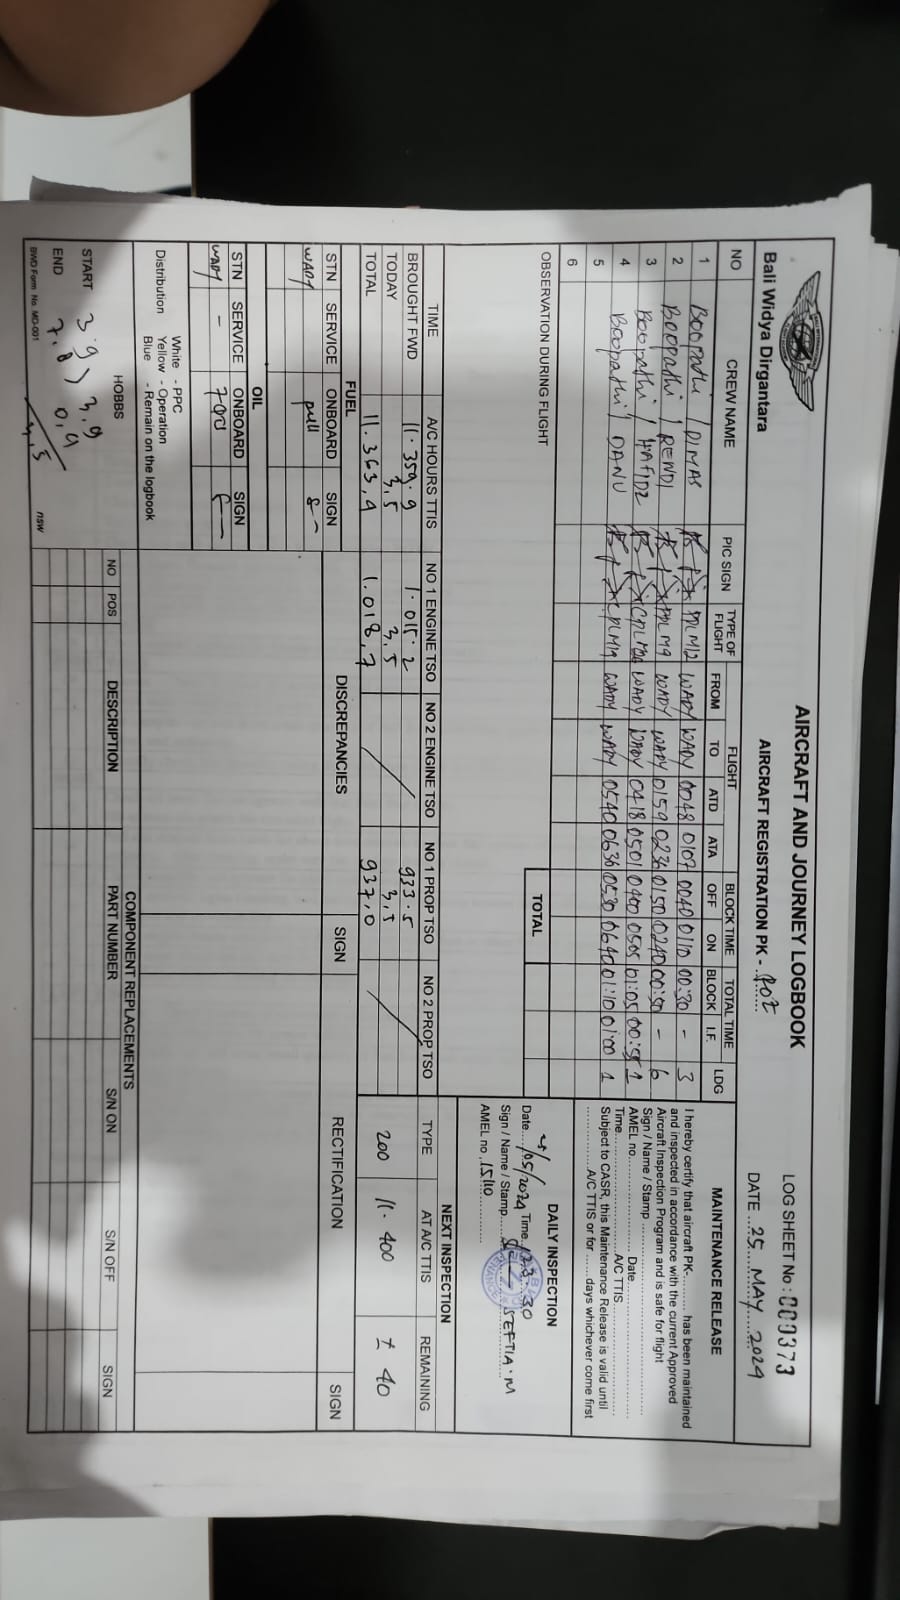 AIRCRAFT AND JOURNEY LOGBOOK
LOG SHEET No : 000373
Bali Widya Dirgantara
AIRCRAFT REGISTRATION PK -
DATE 25 MAY 2024
NO CREW NAME PIC SIGN TYPE OF FLIGHT FLIGHT BLOCK TIME TOTAL TIME LDG
FROM TO ATD ATA OFF ON BLOCK I.F.
1 Boopathi / DIMAS PPL M12 WADY WADY 0048 0107 0040 0110 00:30 - 3
2 Boopathi / RENDI PPL M9 WADY WADY 0159 0236 0150 0240 00:50 - 6
3 Boopathi / HAFIDZ WADY WADY 0418 0501 0400 0505 01:05 1
4 Boopathi / DANU CPL M19 WADY WADY 0540 0636 0530 0640 01:10 01:00 1
5
6
OBSERVATION DURING FLIGHT
TOTAL
MAINTENANCE RELEASE
I hereby certify that aircraft PK-.......... has been maintained
and inspected in accordance with the current Approved
Aircraft Inspection Program and is safe for flight
Sign / Name / Stamp
AMEL no. Date
Time A/C TTIS
Subject to CASR, this Maintenance Release is valid until
A/C TTIS or for ...... days whichever come first
DAILY INSPECTION
Date /05/2024 Time 23.30
Sign / Name / Stamp SEFTIA.M
AMEL no 15110
TIME A/C HOURS TTIS NO 1 ENGINE TSO NO 2 ENGINE TSO NO 1 PROP TSO NO 2 PROP TSO
BROUGHT FWD 11.359.9 1.015.2 933.5
TODAY 3,5 3,5 3,5
TOTAL 11.363,4 1.018,7 937,0
NEXT INSPECTION
TYPE AT A/C TTIS REMAINING
200 11.400 ± 40
FUEL
STN SERVICE ONBOARD SIGN
WADY full
OIL
STN SERVICE ONBOARD SIGN
WADY - 7qt
DISCREPANCIES SIGN RECTIFICATION SIGN
Distribution White - PPC
Yellow - Operation
Blue - Remain on the logbook
COMPONENT REPLACEMENTS
NO POS DESCRIPTION PART NUMBER S/N ON S/N OFF SIGN
HOBBS
START 3.9 3,9
END 7.8 0,4
BWD Form No. MO-001
nsw